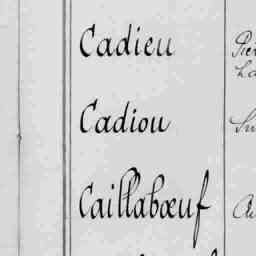 Cadieu
Cadiou
Caillabœuf